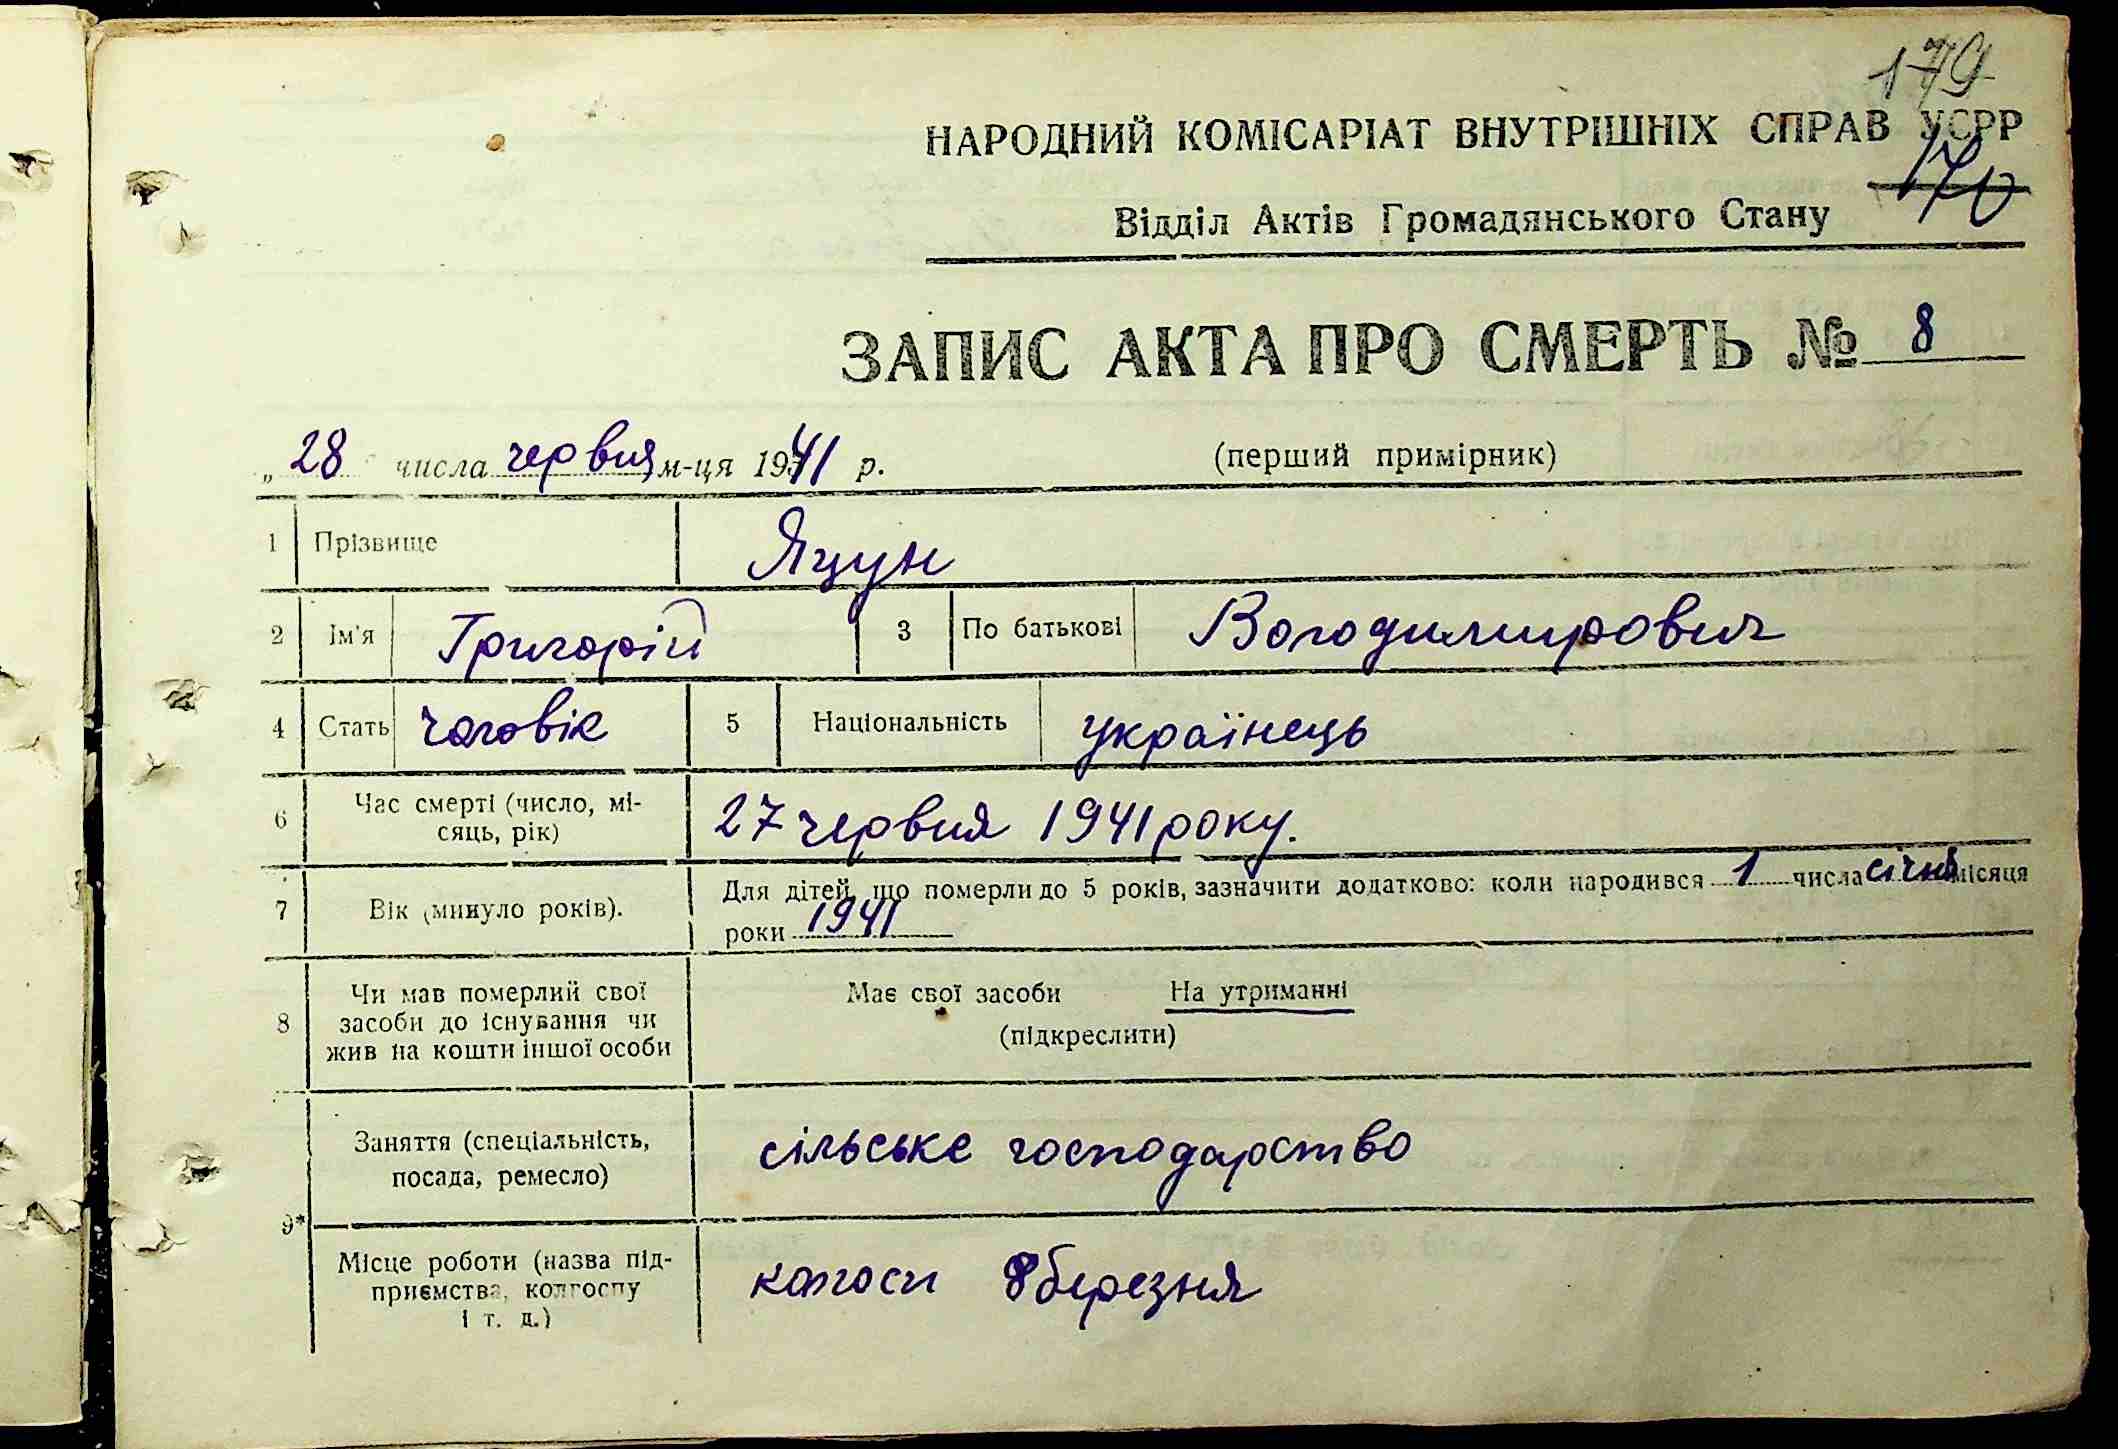 179
НАРОДНИЙ КОМІСАРІАТ ВНУТРІШНІХ СПРАВ УСРР
170
Відділ Актів Громадянського Стану
ЗАПИС АКТА ПРО СМЕРТЬ № 8
„ 28 " числа червня м-ця 1941 р. (перший примірник)
1 Прізвище Яцун
2 Ім'я Григорій 3 По батькові Володимирович
4 Стать чоловік 5 Національність українець
6 Час смерті (число, мі-
сяць, рік) 27 червня 1941 року.
7 Вік (минуло років). Для дітей, що померли до 5 років, зазначити додатково: коли народився 1 числа січня місяця
роки 1941
8 Чи мав померлий свої
засоби до існування чи
жив на кошти іншої особи
Має свої засоби На утриманні
(підкреслити)
9* Заняття (спеціальність,
посада, ремесло) сільське господарство
Місце роботи (назва під-
приємства, колгоспу
і т. д.) колгосп 8 березня